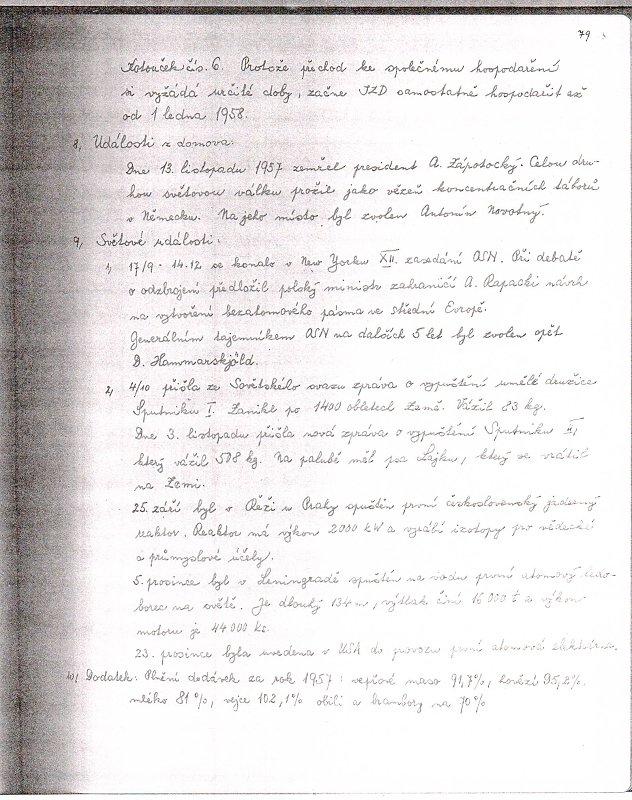 79
Kotouček čís. 6. Protože přechod ke společnému hospodaření
si vyžádá určité doby, začne JZD samostatně hospodařit až
od 1 ledna 1958.
8, Události z domova.
Dne 13. listopadu 1957 zemřel president A. Zápotocký. Celou dru-
hou světovou válku prožil jako vězeň koncentračních táborů
v Německu. Na jeho místo byl zvolen Antonín Novotný.
9, Světové události.
1, 17/9 - 14.12 se konalo v New Yorku XII. zasedání OSN. Při debatě
o odzbrojení předložil polský ministr zahraničí A. Rapacki návrh
na vytvoření bezatomového pásma ve střední Evropě.
Generálním tajemníkem OSN na dalších 5 let byl zvolen opět
D. Hammarskjöld.
2, 4/10 přišla ze Sovětského svazu zpráva o vypuštění umělé družice
Sputniku I. Zanikl po 1400 obletech Země. Vážil 83 kg.
Dne 3. listopadu přišla nová zpráva o vypuštění Sputniku II,
který vážil 508 kg. Na palubě měl psa Lajku, který se vrátil
na Zemi.
25. září byl v Řeži u Prahy spuštěn první československý jaderný
reaktor. Reaktor má výkon 2000 kW a vyrábí izotopy pro vědecké
a průmyslové účely.
5. prosince byl v Leningradě spuštěn na vodu první atomový ledo-
borec na světě. Je dlouhý 134 m, výtlak činí 16 000 t a výkon
motoru je 44 000 ks.
23. prosince byla uvedena v USA do provozu první atomová elektrárna.
10, Dodatek: Plnění dodávek za rok 1957: vepřové maso 91,7%, hovězí 95,2%
mléko 81 %, vejce 102,1% obilí a brambory na 70 %